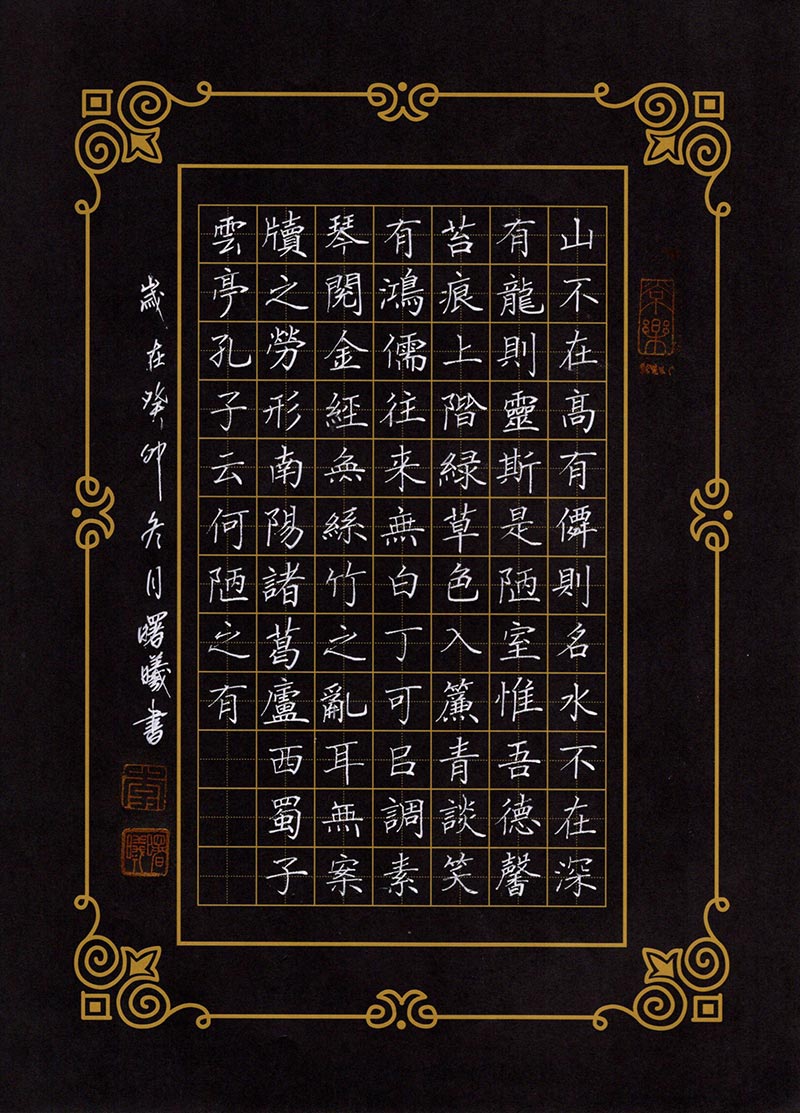 山不在高有僊則名水不在深
有龍則靈斯是陋室惟吾德馨
苔痕上階緑草色入簾青談笑
有鴻儒往来無白丁可㠯調素
琴閱金經無絲竹之亂耳無案
牘之勞形南陽諸葛廬西蜀子
雲亭孔子云何陋之有
歲在癸卯冬月曙曦書
曙曦